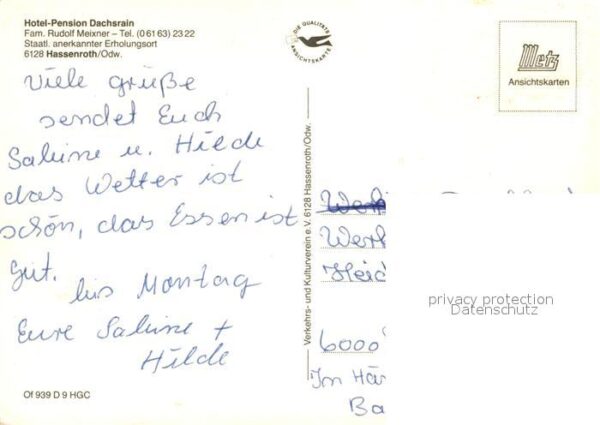 Hotel-Pension Dachsrain
Fam. Rudolf Meixner – Tel. (0 61 63) 23 22
Staatl. anerkannter Erholungsort
6128 Hassenroth/Odw.
Viele grüße
sendet Euch
Sabine u. Hilde
das Wetter ist
schön, das Essen ist
gut.
bis Montag
Eure Sabine +
Hilde
Of 939 D 9 HGC
DIE QUALITÄTS ANSICHTSKARTE
Verkehrs- und Kulturverein e.V. 6128 Hassenroth/Odw.
Metz
Ansichtskarten
Werk
Heid
6000
Im Här
Ba
privacy protection
Datenschutz